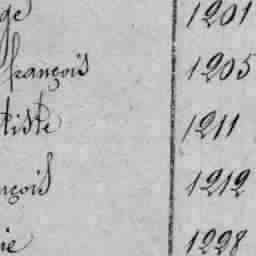 ge 1201
françois 1205
tiste 1211
nçois 1212
ie 1228